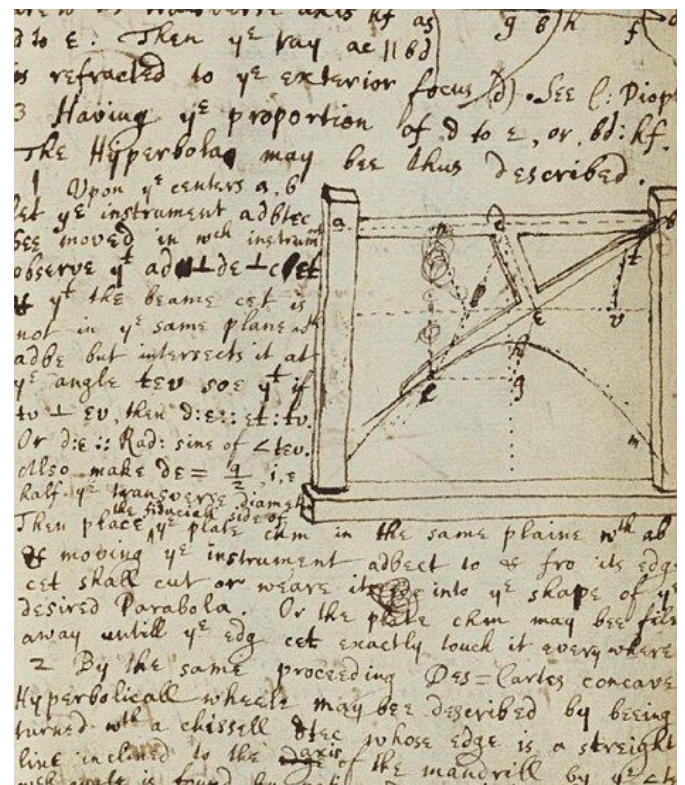 to ε. Then yᵉ ray ac || bd
is refracted to yᵉ exterior focus (d). See C: Diopt
3 Having yᵉ proportion of d to ε, or, bd: hf.
The Hyperbola may bee thus described.
1 Upon yᵉ centers a, b
let yᵉ instrument adbtec
bee moved in wᶜʰ instrumᵗ
observe yᵗ ad⊥de⊥cet
& yᵗ the beame cet is
not in yᵉ same plane wᵗʰ
adbe but intersects it at
yᵉ angle tev soe yᵗ if
tv ⊥ ev, then d:ε::et:tv.
Or d:ε:: Rad: sine of <tev.
Also make de = q/2, i,e
half yᵉ transverse diameter
the fiduciall side of
Then place yᵉ plate chm in the same plaine wᵗʰ ab
& moving yᵉ instrument adbect to & fro its edge
cet shall cut or weare it into yᵉ shape of yᵉ
desired Parabola. Or the plate chm may bee filed
away untill yᵉ edg cet exactly touch it everywhere
2 By the same proceeding Des=Cartes concave
Hyperbolicall wheele may bee described by beeing
turned wᵗʰ a chissell dtec whose edge is a streight
line inclined to the axis of the mandrill by yᵉ <
a
b
d
e
t
v
h
g
m